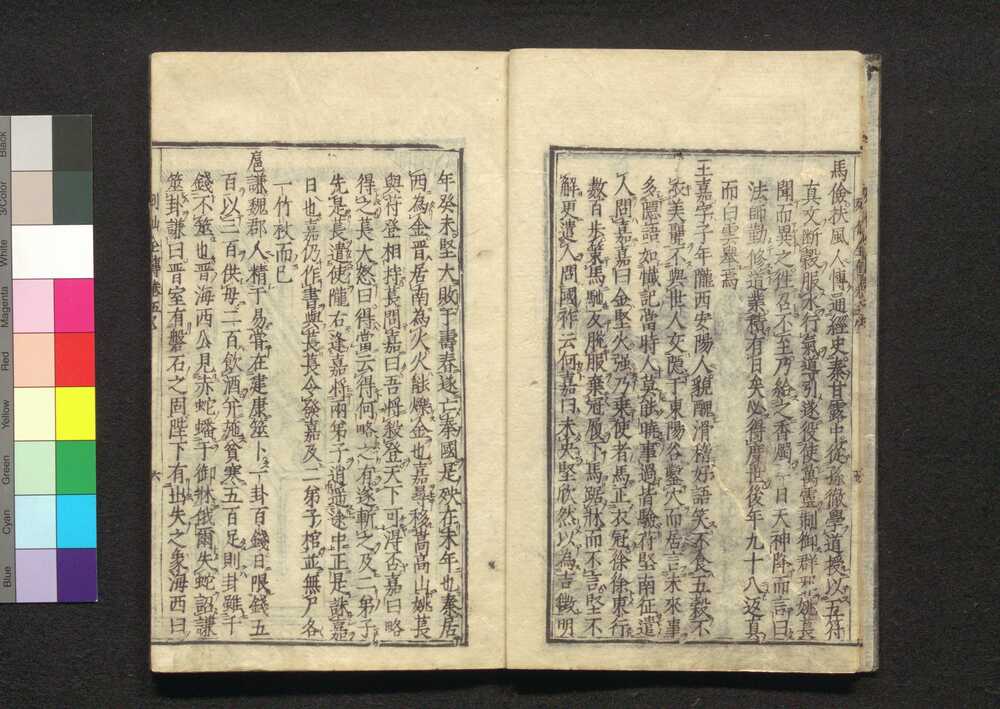 馬儉扶風人博通經史秦甘露中從孫徹學道授以五符
真文断穀服水行氣導引遂役使萬靈制御群邪姚萇
聞而異之往召不至乃給之香燭一日天神降而言曰
法師勤修道業積有日矣必得度世後年九十八返真
而白雲舉焉
王嘉字子年隴西安陽人貌醜滑稽好語笑不食五穀不
衣美麗不與世人交隱于東陽谷鑿穴而居言未來事
多隱語如懺記當時人莫能曉事過皆驗符堅南征遣
人問嘉嘉曰金堅火强乃乗使者馬正衣冠徐徐東行
数百步策馬馳反脫服棄冠履下馬踞牀而不言堅不
解更遣人問國祚云何嘉曰未央堅欣然以為吉徴明
年癸未堅大敗于壽春遂亡秦國是殃在末年也秦居
西為金晋居南為火火能爍金也嘉尋移嵩高山姚萇
與符登相持萇問嘉曰吾將殺登天下可得否嘉曰略
得之萇大怒曰得當云得何略之有遂斬之及二弟子
先是萇遣使隴右逢嘉將兩弟子逍遥途中正是誅嘉
日也嘉仍作書與萇萇令發嘉及二弟子棺並無尸各
一竹杖而已
扈謙魏郡人精于易常在建康筮卜一卦百錢日限錢五
百以三百供母二百飲酒并施貧寒五百足則卦雖千
錢不筮也晋海西公見赤蛇蟠于御牀俄爾失蛇詔謙
筮卦謙曰晋室有磐石之固陛下有出失之象海西曰
列仙全傳卷五
六
Black
3/Color
White
Magenta
Red
Yellow
Green
Cyan
Blue